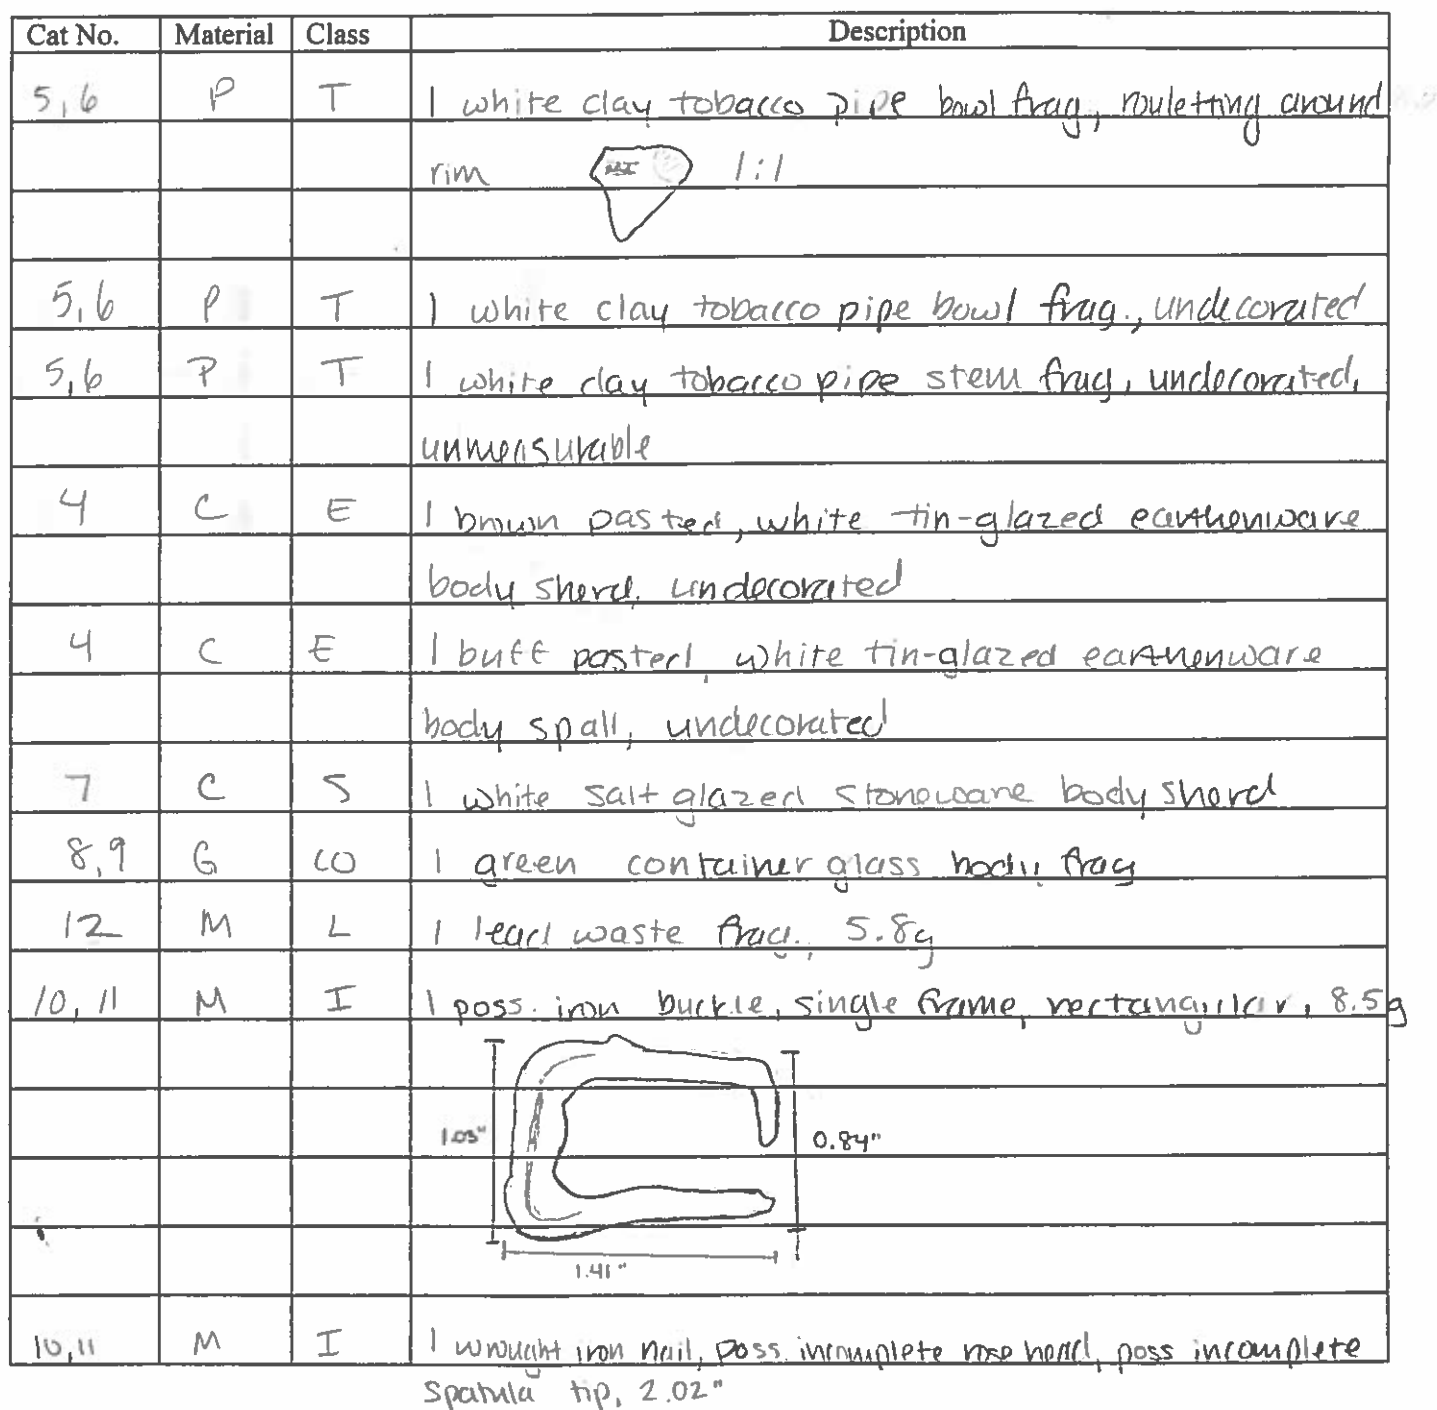 Cat No. Material Class Description
5,6 P T 1 white clay tobacco pipe bowl frag, rouletting around
rim 1:1
5,6 P T 1 white clay tobacco pipe bowl frag., undecorated
5,6 P T 1 white clay tobacco pipe stem frag, undecorated,
unmeasurable
4 C E 1 brown pasted, white tin-glazed earthenware
body sherd, undecorated
4 C E 1 buff pasted, white tin-glazed earthenware
body spall, undecorated
7 C S 1 white salt glazed stoneware body sherd
8,9 G CO 1 green container glass body frag
12 M L 1 lead waste frag., 5.8g
10, 11 M I 1 poss. iron buckle, single frame, rectangular, 8.5g
1.03"
0.84"
1.41"
10,11 M I 1 wrought iron nail, poss. incomplete rose head, poss incomplete
spatula tip, 2.02"